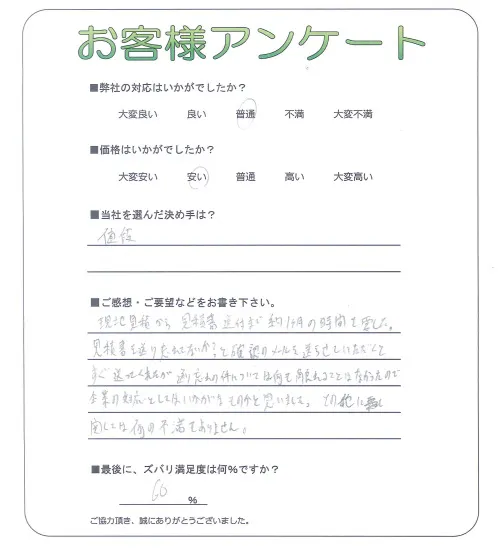 お客様アンケート
■弊社の対応はいかがでしたか？
大変良い 良い 普通 不満 大変不満
■価格はいかがでしたか？
大変安い 安い 普通 高い 大変高い
■当社を選んだ決め手は？
値段
■ご感想・ご要望などをお書き下さい。
現地見積から 見積書送付まで 約1ヶ月の時間を要した。
見積書を送り忘れてないか？と確認のメールを送らせていただくと
すぐ送ってくれたが 遅れの件については何も触れることはなかったので
企業の対応としてはいかがなものかと思いました。その他に
関しては何の不満もありません。
■最後に、ズバリ満足度は何％ですか？
60 ％
ご協力頂き、誠にありがとうございました。